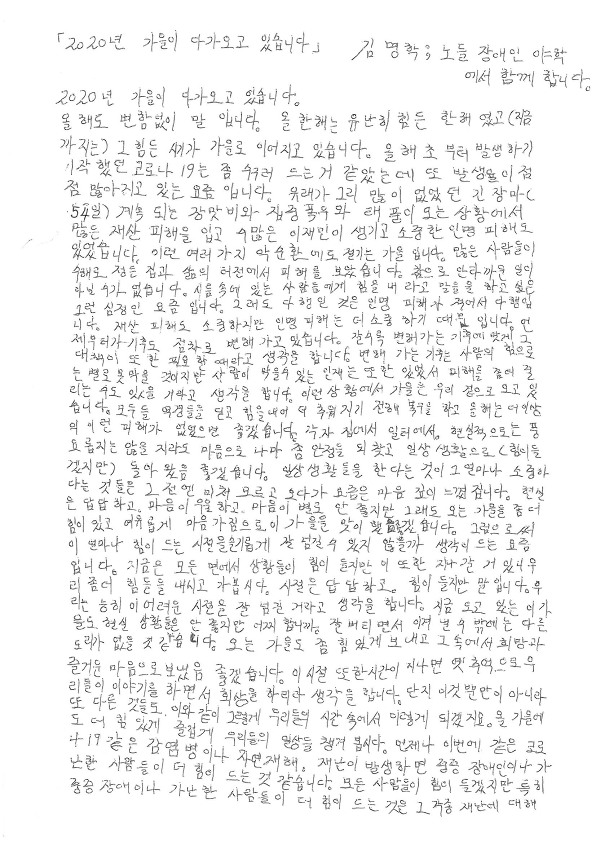 「2020년 가을이 다가오고 있습니다」 김명학; 노들 장애인 야학
에서 함께 합니다.
2020년 가을이 다가오고 있습니다.
올해도 변함없이 말 입니다. 올 한해는 유난히 힘든 한해 였고(지금
까지는) 그 힘든 시기가 가을로 이어지고 있습니다. 올해 초 부터 발생하기
시작 했던 코로나 19는 좀 수그러 드는 거 같았는데 또 발생률이 점
점 많아지고 있는 요즘 입니다. 유래가 그리 많이 없었던 긴 장마(
54일) 계속 되는 장맛비와 집중 폭우와 태풍이 오는 상황에서
많은 재산 피해를 입고 수많은 이재민이 생기고 소중한 인명 피해도
있었습니다. 이런 여러가지 악순환에도 절기는 가을 입니다. 많은 사람들이
수해로 정든 집과 삶의 터전에서 피해를 보았습니다. 참으로 안타까운 일이
아닐 수가 없습니다. 시름 속에 있는 사람들에게 힘을 내라고 말을 하고 싶은
그런 심정인 요즘 입니다. 그래도 다행인 것은 인명 피해가 적어서 다행입
니다. 재산 피해도 소중하지만 인명 피해는 더 소중하기 때문 입니다. 언
제부터가 기후도 점차로 변해 가고 있습니다. 갈수록 변해가는 기후에 맞게 그
대책이 또한 필요할 때라고 생각을 합니다. 변해 가는 기후는 사람의 힘으로
는 별로 못막을 것이지만 사람이 막을수 있는 인재는 또한 있어서 피해를 줄여 줄
리는 수도 있을 거라고 생각을 합니다. 이런 상황에서 가을은 우리 곁으로 오고 있
습니다. 모두들 역경들을 딛고 힘을 내어 더 추워지기 전에 복구를 하고 올해는 더 이상
의 이런 피해가 없었으면 좋겠습니다. 각자 집에서 일터에서, 현실적으로는 풍
요롭지는 않을 지라도 마음으로 나마 좀 안정을 되찾고 일상 생활으로(힘이들
겠지만) 돌아 왔음 좋겠습니다. 일상 생활들을 한다는 것이 그 얼마나 소중하
다는 것들은 그 전엔 미처 모르고 오다가 요즘은 마음 깊이 느껴 집니다. 현실
은 답답하고, 마음이 우울하고. 마음이 별로 안 좋지만 그래도 오는 가을을 좀 더
힘이 있고 여유롭게 마음 가짐으로 이 가을을 맞이 했음 좋겠습니다. 그럼으로써
이 얼마나 힘이 드는 시절을 슬기롭게 잘 넘길수 있지 않을까 생각이 드는 요즘
입니다. 지금은 모든 면에서 상황들이 힘이 들지만 이 또한 지나갈 거 있니 우
리 좀더 힘들을 내시고 가봅시다. 시절은 답답하고. 힘이 들지만 말 입니다. 우
리는 능히 이 어려운 시절을 잘 넘길 거라고 생각을 합니다. 지금 오고 있는 이 가
을도 현실 상황들은 안 좋지만 어찌 합니까. 잘 버티면서 이겨 낼 수 밖에는 다른
도리가 없을 것 같습니다. 오는 가을도 좀 힘 있게 보내고 그 속에서 희망과
즐거운 마음으로 보냈음 좋겠습니다. 이 시절 또한 시간이 지나면 옛 추억으로 우
리들이 이야기를 하면서 회상을 하리라 생각을 합니다. 단지 이것 뿐만이 아니라
또 다른 것들도. 이와 같이 그렇게 우리들의 시간 속에서 이렇게 되겠지요. 올 가을에
도 더 힘 있게 즐겁게 우리들의 일상들을 챙겨 봅시다. 언제나 이번에 같은 코로
나 19 같은 감염병이나 자연재해. 재난이 발생하면 중증 장애인이나 가
난한 사람들이 더 힘이 드는 것 같습니다. 모든 사람들이 힘이 들겠지만 특히
중증 장애이나 가난한 사람들이 더 힘이 드는 것은 그 각종 재난에 대해